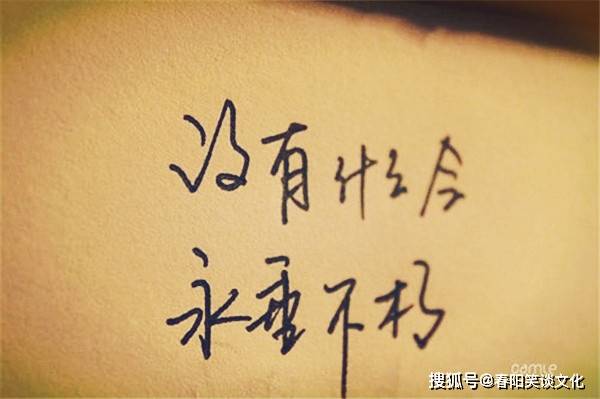 没有什么会
永垂不朽
搜狐号@春阳笑谈文化